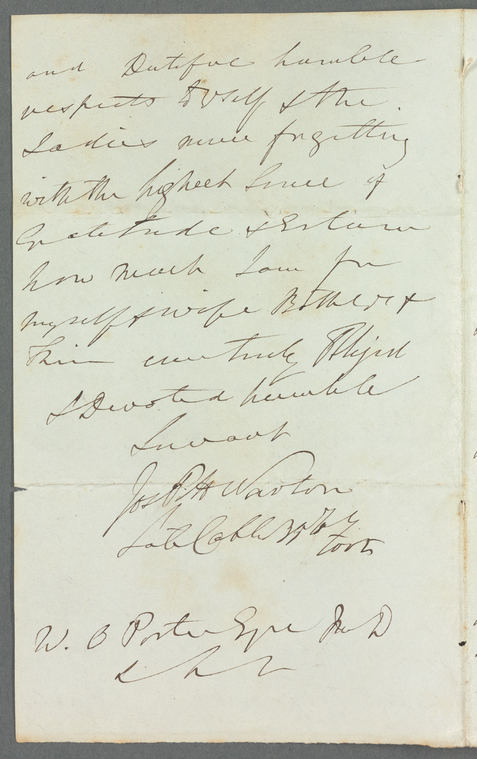 and Dutiful humble
respects to Self & the
Ladies never forgetting
with the highest Sence of
Gratitude & Esteem
how much I am for
myself & wife Both &
Their ever truly Obliged
& Devoted humble
Servant
Jos
Late 37
Foot
W. O Porter Esqre M D